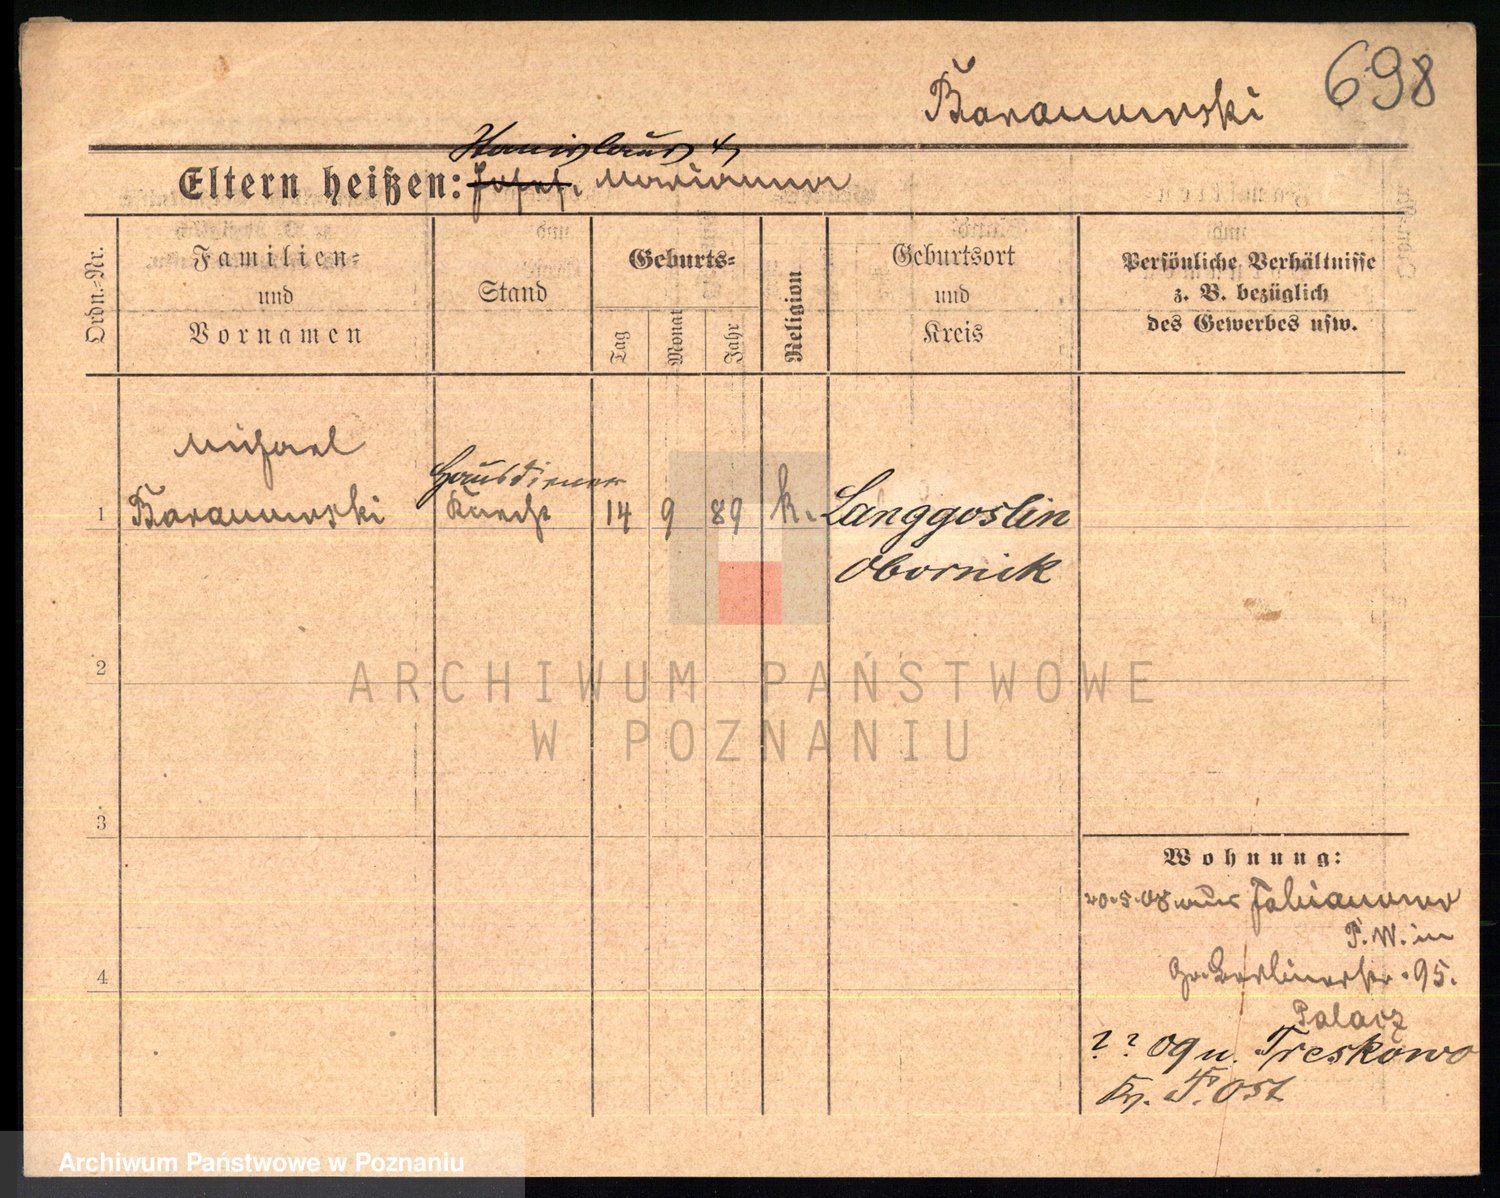 698
Baranowski
Stanislaus u
Eltern heißen: Josef, Marianna
Ordn.=Nr.
Familien=
und
Vornamen
Stand
Geburts=
Tag
Monat
Jahr
Religion
Geburtsort
und
Kreis
Persönliche Verhältnisse
z. B. bezüglich
des Gewerbes usw.
Michael
Hausdiener
1 Baranowski Knecht 14 9 89 k. Langgoslin
Obornik
2
ARCHIWUM PAŃSTWOWE
W POZNANIU
3
Wohnung:
20.5.08 aus Fabianowo
P. W. in
Gr. Berlinerstr. 95.
4
Palacz
? ? 09 n. Treskowo
Kr. P. Ost
Archiwum Państwowe w Poznaniu